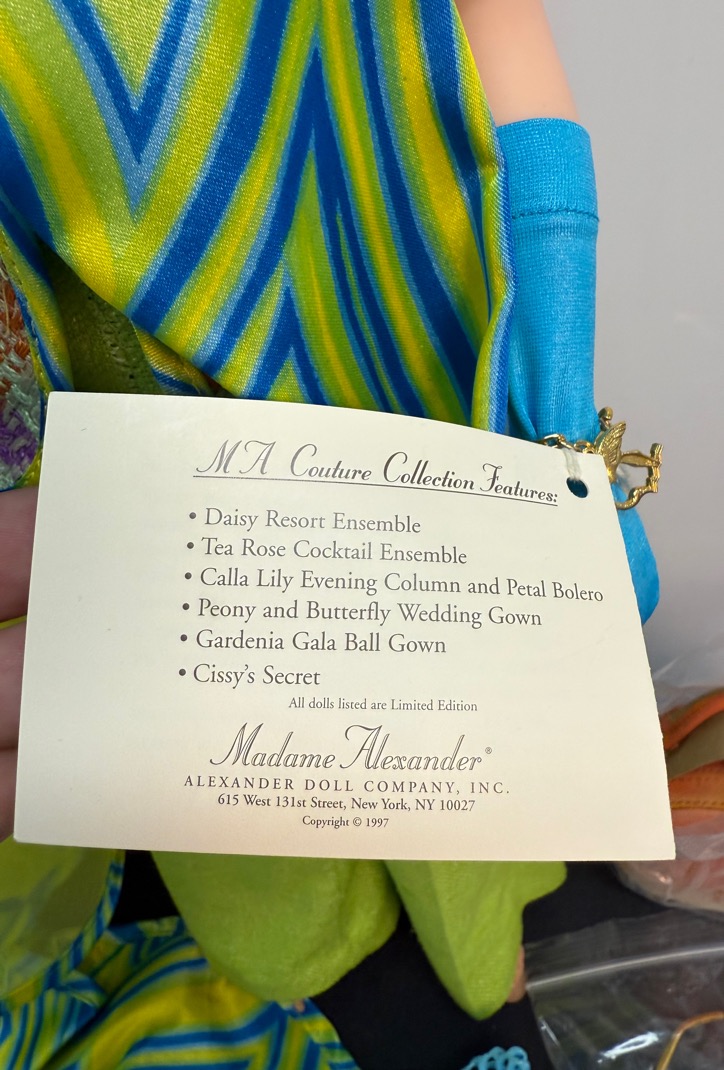 MA Couture Collection Features:
• Daisy Resort Ensemble
• Tea Rose Cocktail Ensemble
• Calla Lily Evening Column and Petal Bolero
• Peony and Butterfly Wedding Gown
• Gardenia Gala Ball Gown
• Cissy's Secret
All dolls listed are Limited Edition
Madame Alexander®
ALEXANDER DOLL COMPANY, INC.
615 West 131st Street, New York, NY 10027
Copyright © 1997